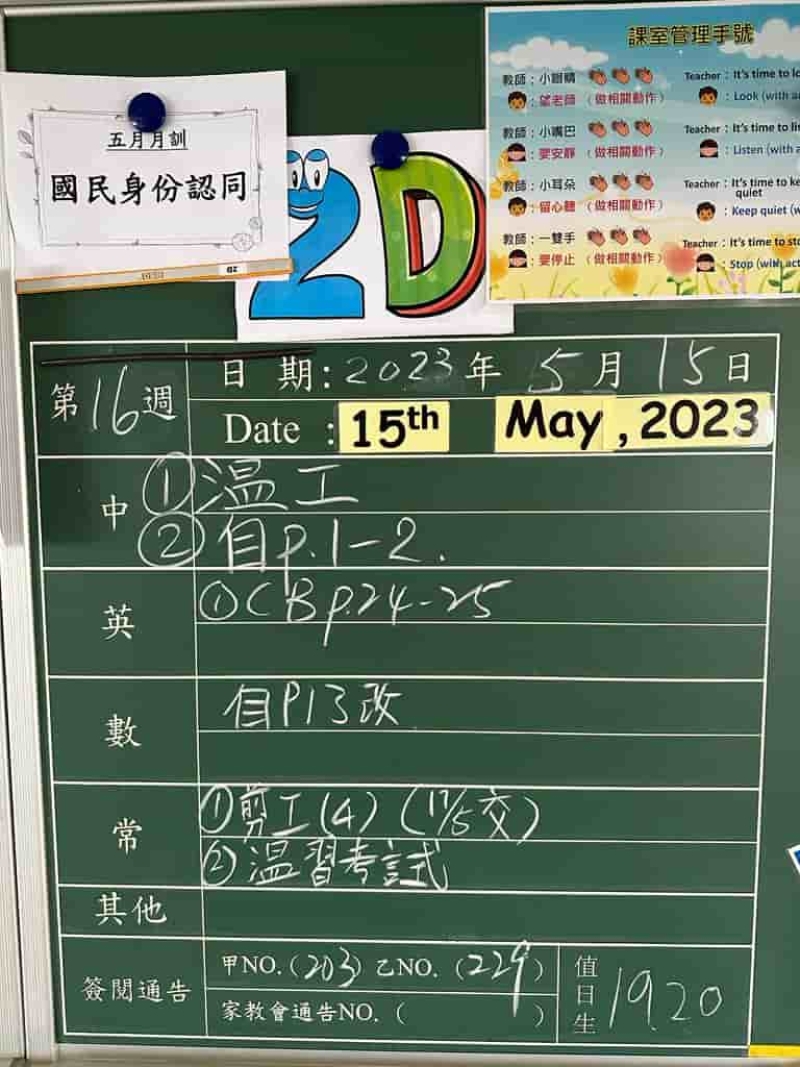 五月月訓
國民身份認同
2D
課室管理手號
教師：小眼睛
：望老師（做相關動作）
Teacher：It's time to lo
：Look (with a
教師：小嘴巴
：要安靜（做相關動作）
Teacher：It's time to li
：Listen (with a
教師：小耳朵
：留心聽（做相關動作）
Teacher：It's time to ke
quiet
：Keep quiet (w
教師：一雙手
：要停止（做相關動作）
Teacher：It's time to sto
：Stop (with act
第16週
日期：2023年5月15日
Date : 15th May, 2023
中
①溫工
②自p.1-2.
英
①CBp.24-25
數
自P13改
常
①剪工(4)(17/5交)
②溫習考試
其他
簽閱通告
甲NO.(203) 乙NO.(229)
家教會通告NO.( )
值日生
19.20